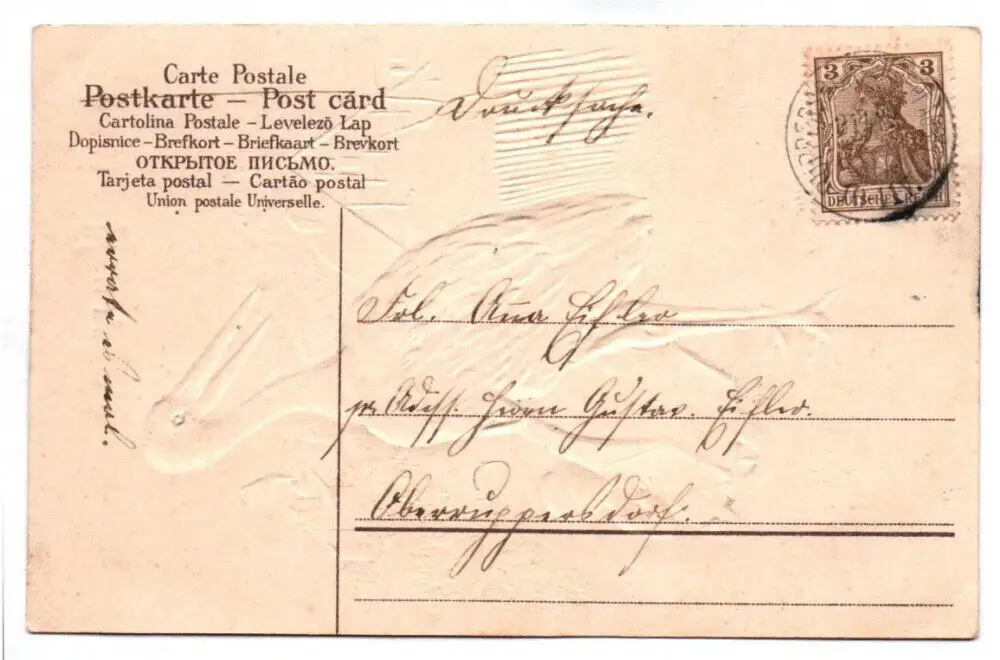 Carte Postale
Postkarte – Post card
Cartolina Postale – Levelező Lap
Dopisnice – Brefkort – Briefkaart – Brevkort
ОТКРЫТОЕ ПИСЬМО.
Tarjeta postal — Cartão postal
Union postale Universelle.
Drucksache.
3 3
DEUTSCHES REICH
Frl. Anna Eifler
pr. Adress. Herrn Gustav Eifler.
Oberruppersdorf.